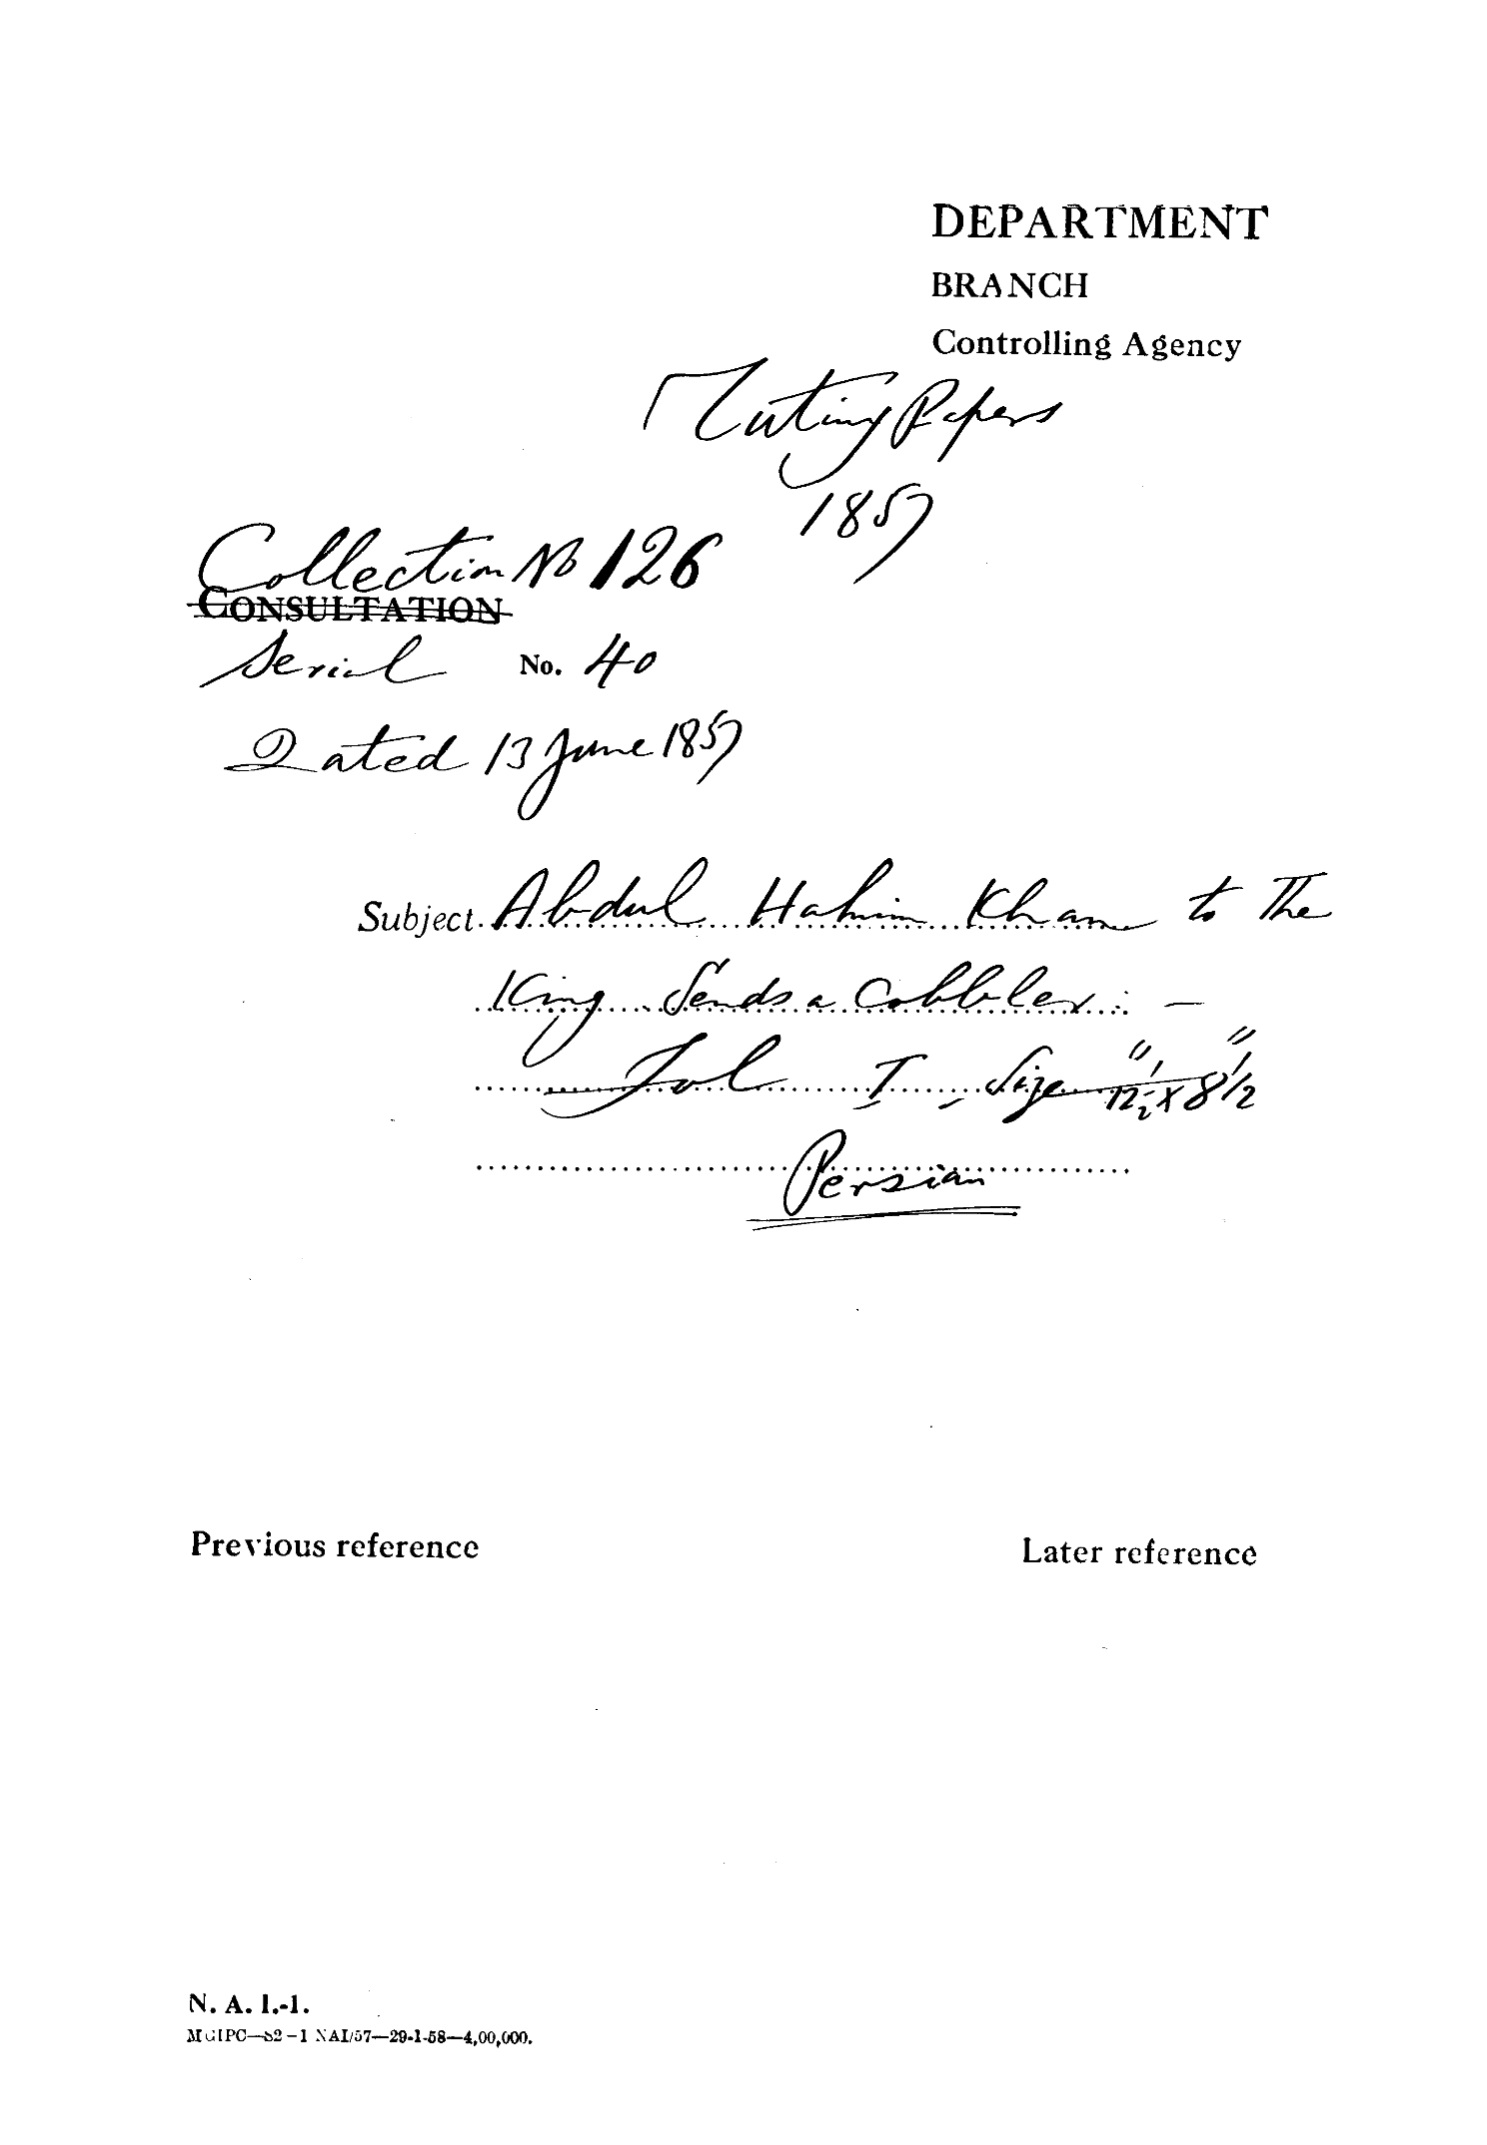 DEPARTMENT
BRANCH
Controlling Agency
Mutiny Papers
1857
Collection No 126
CONSULTATION
Serial No. 40
Dated 13 June 1857
Subject. Abdul Hakim Khan to the
King Sends a Cobbler: —
Fol I - Size 12½" x 8½"
Persian
Previous reference
Later reference
N. A. I.-1.
MGIPC—S2—1 NAI/57—29-1-58—4,00,000.